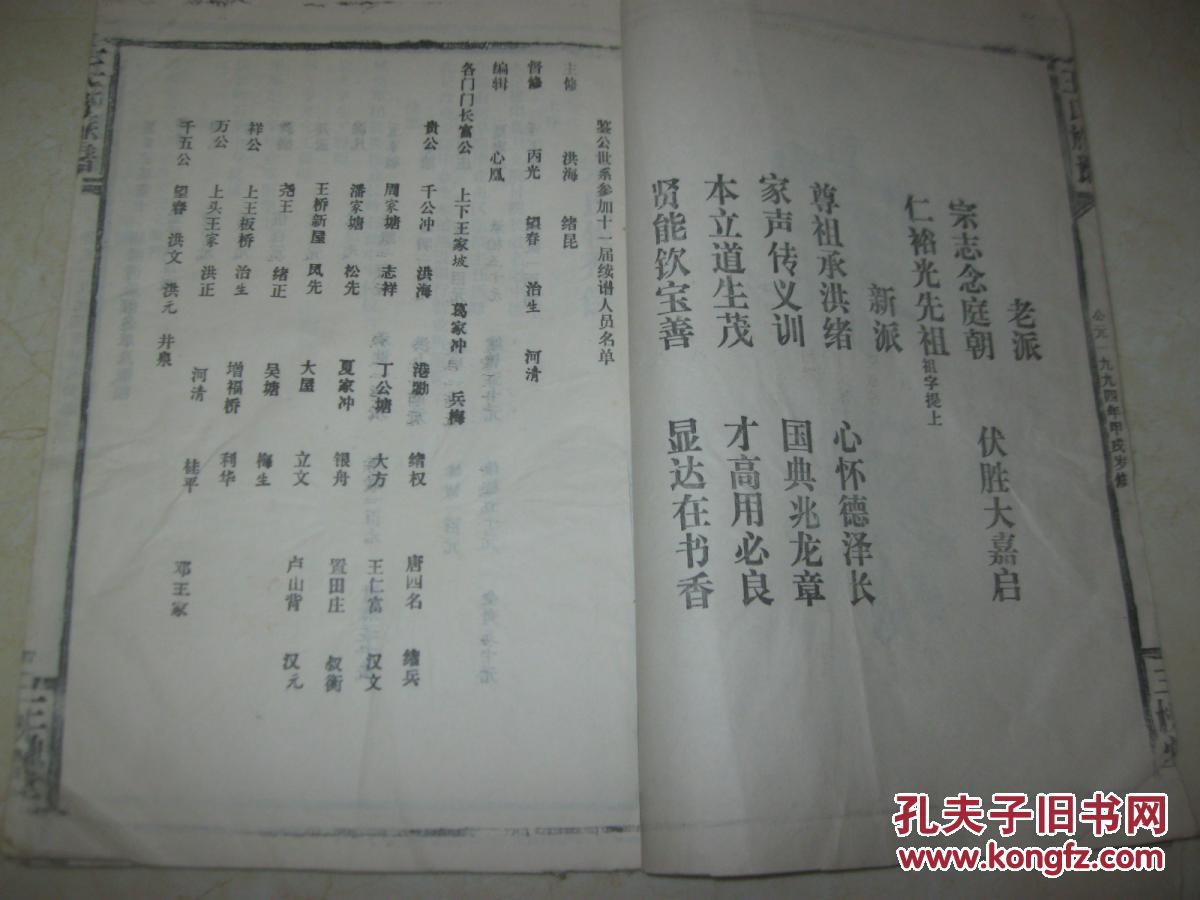 王氏族谱
公元一九九四年甲戌岁修
三槐堂
老派
宗志念庭朝 伏胜大嘉启
仁裕光先祖 祖字提上
新派
尊祖承洪绪 心怀德泽长
家声传义训 国典兆龙章
本立道生茂 才高用必良
贤能钦宝善 显达在书香
鉴公世系参加十一届续谱人员名单
主修 洪海 绪昆
督修 丙光 望春 治生 河清
编辑 心凰
各门门长富公 上下王家坡 葛家冲 兵梅
贵公 千公冲 洪海 港勋 绪权 唐四名 绪兵
周家塘 志祥 丁公塘 大方 王仁富 汉文
潘家塘 松先 夏家冲 银舟 置田庄 叔衡
王桥新屋 凤先 大屋 立文 卢山背 汉元
尧王 绪正 吴塘 梅生
祥公 上王板桥 治生 增福桥 利华
万公 上头王家 洪正 河清 桂平 邓王家
千五公 望春 洪文 洪元 井泉
孔夫子旧书网
www.kongfz.com